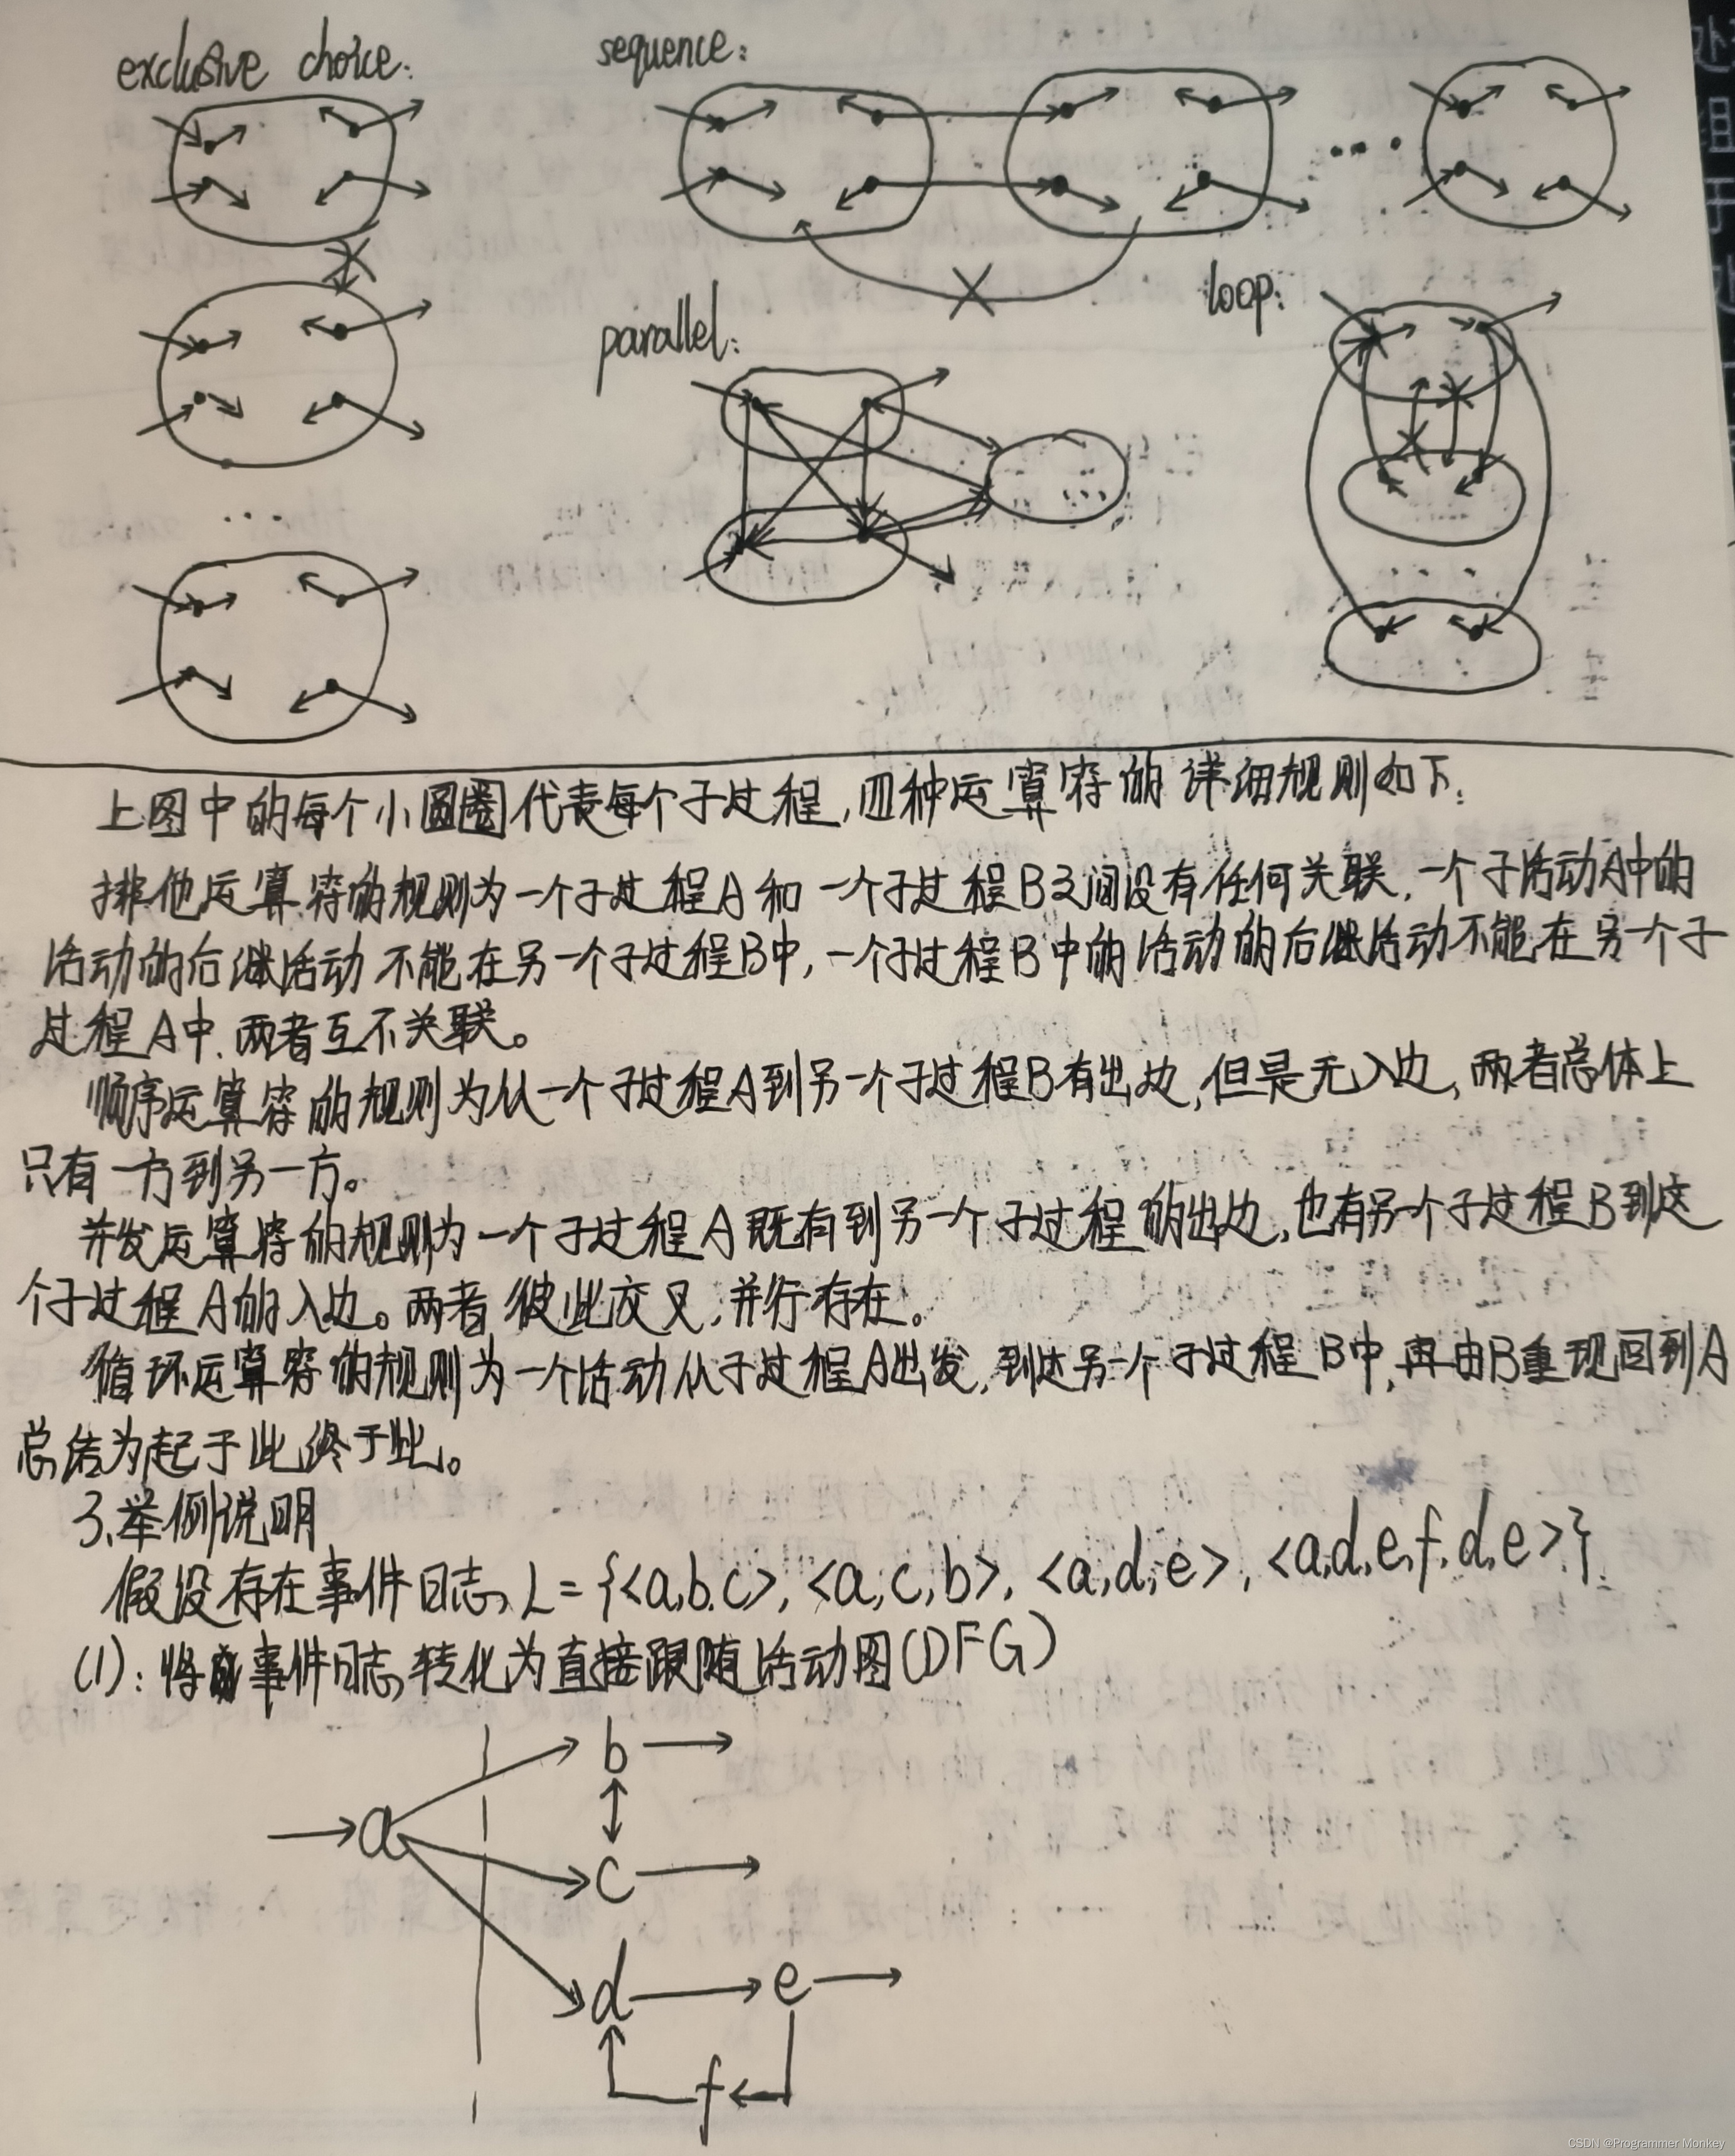 exclusive choice:
sequence:
parallel:
loop:
上图中的每个小圆圈代表每个子过程,四种运算符的详细规则如下:
排他运算符的规则为一个子过程A和一个子过程B之间没有任何关联,一个子活动A中的
活动的后继活动不能在另一个子过程B中,一个子过程B中的活动的后继活动不能在另一个子
过程A中,两者互不关联。
顺序运算符的规则为从一个子过程A到另一个子过程B有出边,但是无入边,两者总体上
只有一方到另一方。
并发运算符的规则为一个子过程A既有到另一个子过程的出边,也有另一个子过程B到这
个子过程A的入边。两者彼此交叉,并行存在。
循环运算符的规则为一个活动从子过程A出发,到达另一个子过程B中,再由B重现回到A
总结为起于此,终于此。
3、举例说明
假设存在事件日志L={<a,b,c>,<a,c,b>,<a,d,e>,<a,d,e,f,d,e>}
(1):将事件日志转化为直接跟随活动图(DFG)
b
a
c
d e
f
处
组
于
CSDN @Programmer Monkey